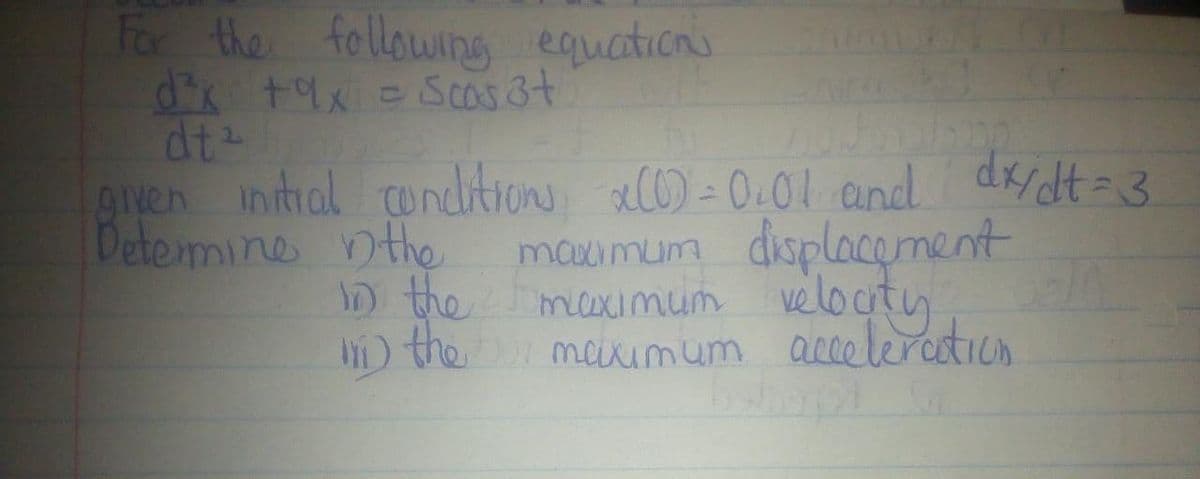 For the following equations
d²x + 9x = 5cos3t
dt²
given initial conditions x(0) = 0.01 and dx/dt = 3
Determine i) the maximum displacement
ii) the maximum velocity
iii) the maximum acceleration